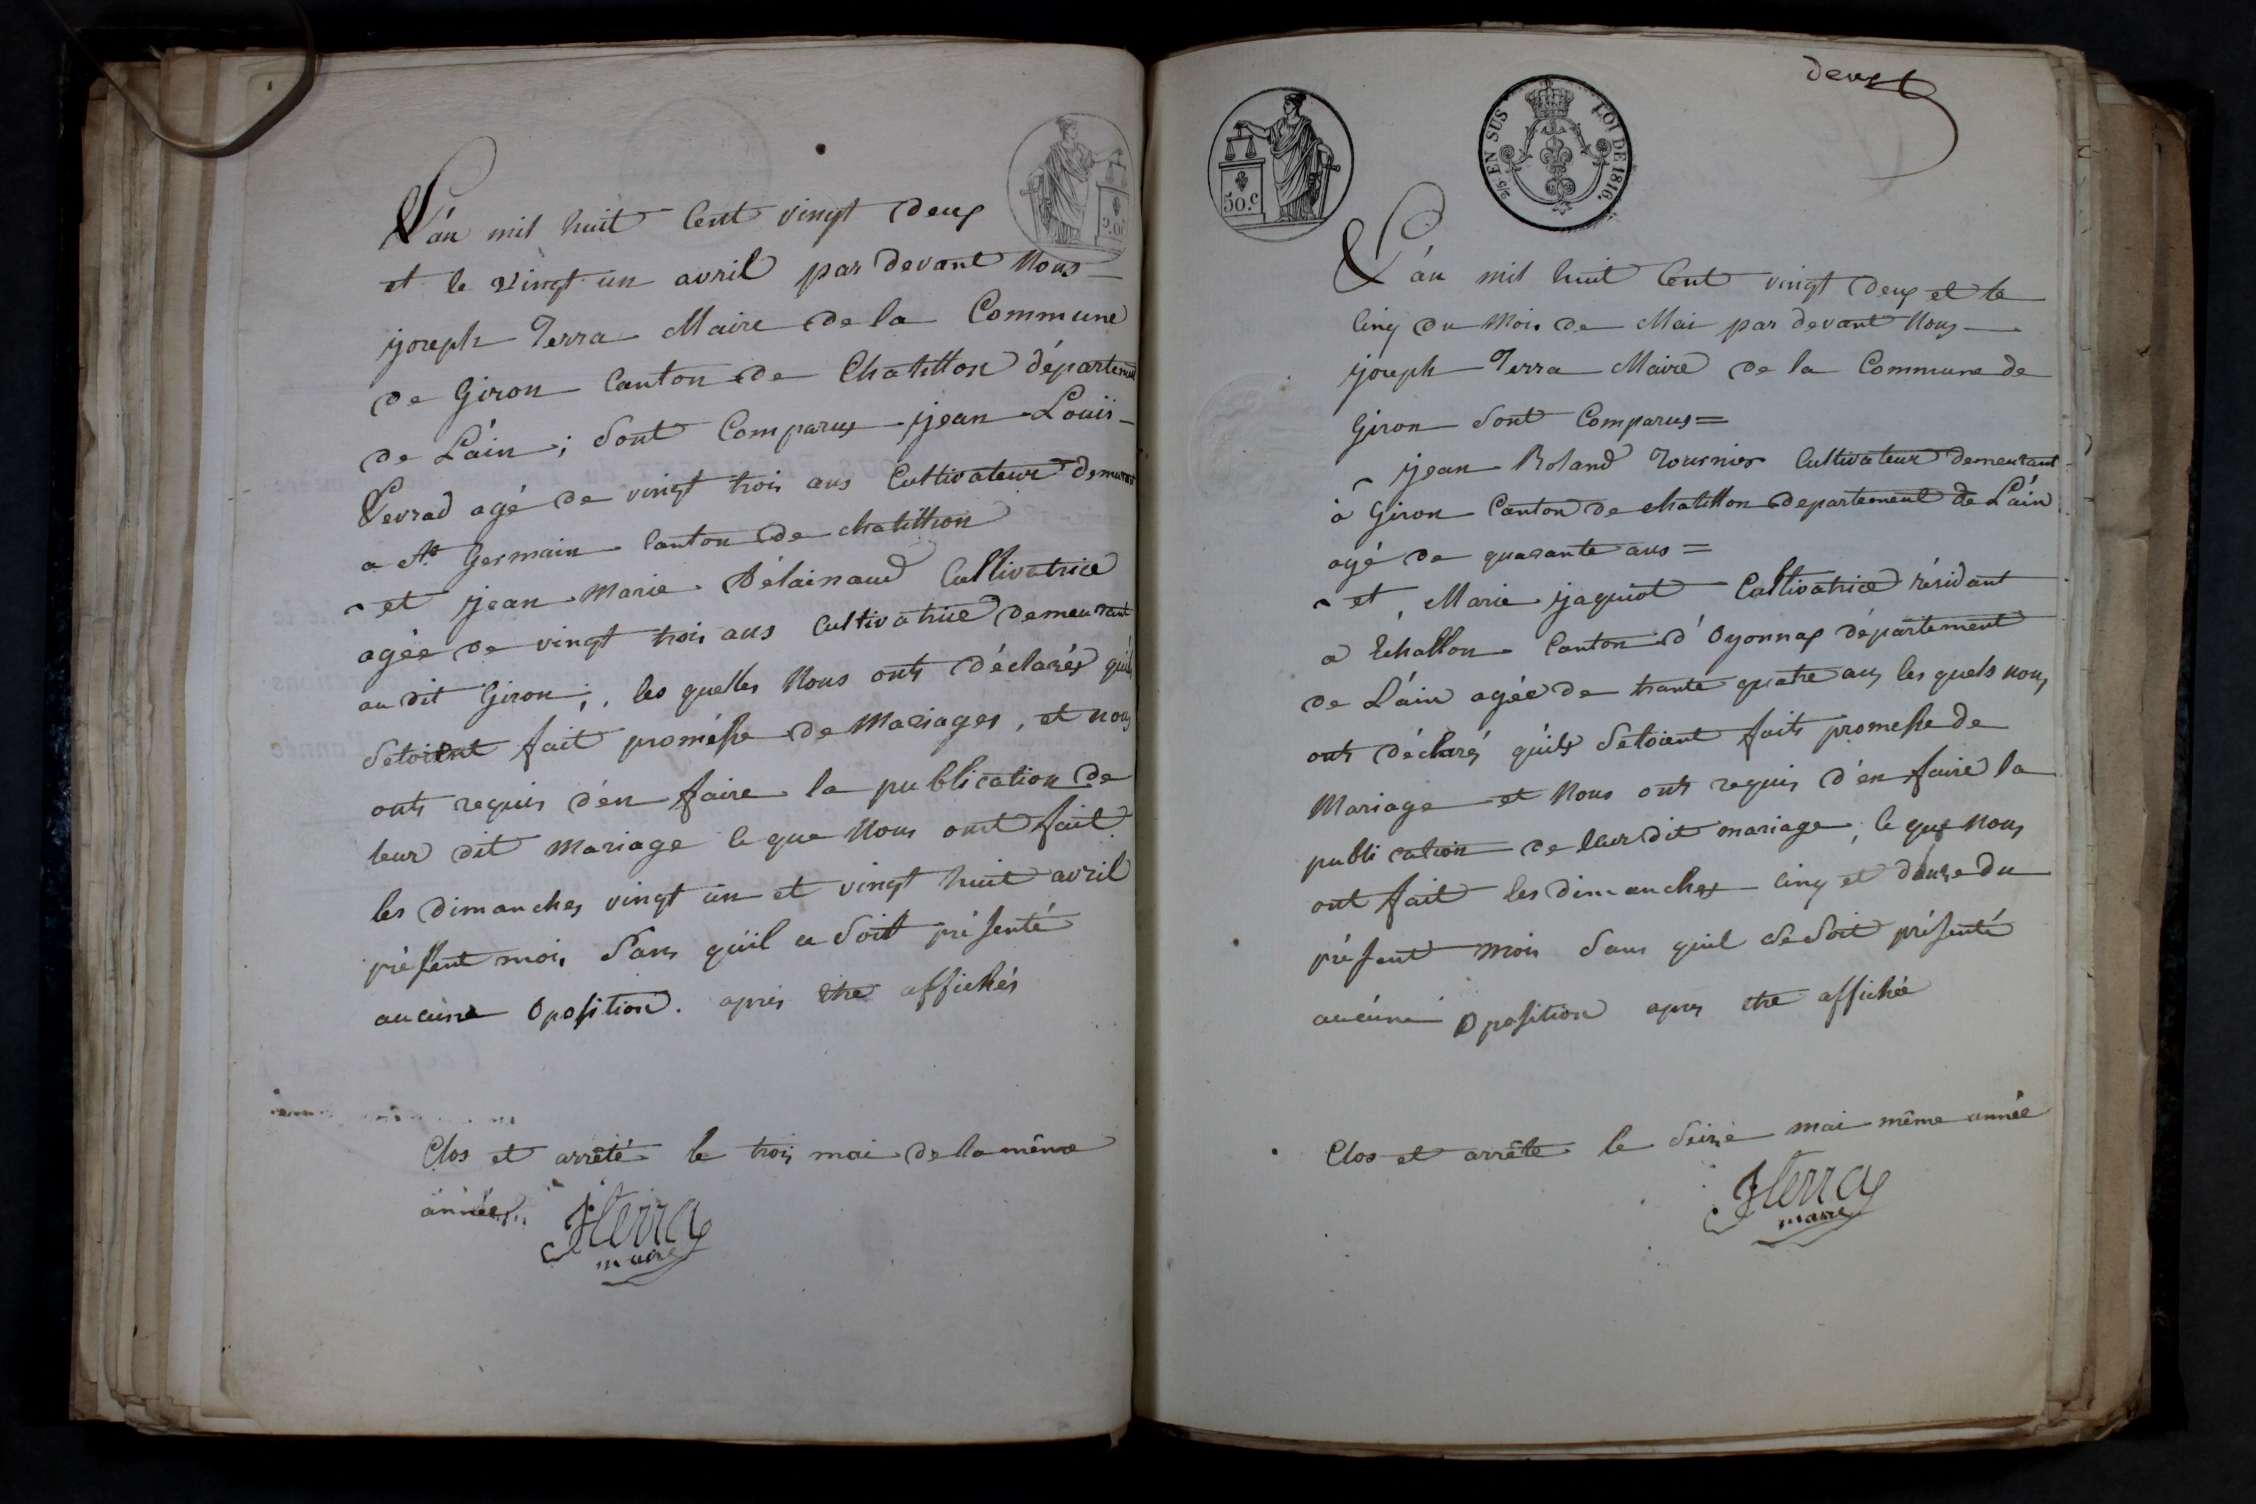 L'án mil huit Cent vingt deux
et le vingt un avril par devant Nous
joseph Terra Maire de la Commune
de Giron Canton de Chatillon départemt
de L'áin ; sont Comparus jean Louis
Levrad agé de vingt trois ans Cultivateur demurant
a St Germain Canton de chatillion
et jean Marie Délainaud Cultivatrice
agée de vingt trois ans Cultivatrice demeurant
au dit Giron ; les quelles Nous onts déclarés quils
setoient fait promésse de Mariages, et nous
onts requis d'en faire la publication de
leur dit Mariage ce que Nous ont fait
les dimanches vingt un et vingt huit avril
présent mois, Sans qu'il ce soit présenté
aucune Oposition. apris être affichés
Clos et arrêté le trois mai de la même
année
JTerra
maire
deux
50.c
2/5 EN SUS LOI DE 1816.
L'án mil huit Cent vingt deux et le
Cinq du Mois de Mai par devant Nous
joseph Terra Maire de la Commune de
Giron sont Comparus =
jean Roland Tournier Cultivateur demeurant
à Giron Canton de chatillon departement de L'áin
agé de quarante ans =
et, Marie jaquiot Cultivatrice résidant
a Échallon Canton d'Oyonnax département
de L'áin agée de trante quatre ans les quels nous
onts déclaré quils setoient faits promesse de
Mariage et Nous onts requis d'en faire la
publication de leur dit mariage, ce que Nous
ont fait les dimanches cinq et douze du
présent mois sans quil se soit présenté
aucune Oposition apres etre affichée
Clos et arrête le seize mai même année
JTerra
maire